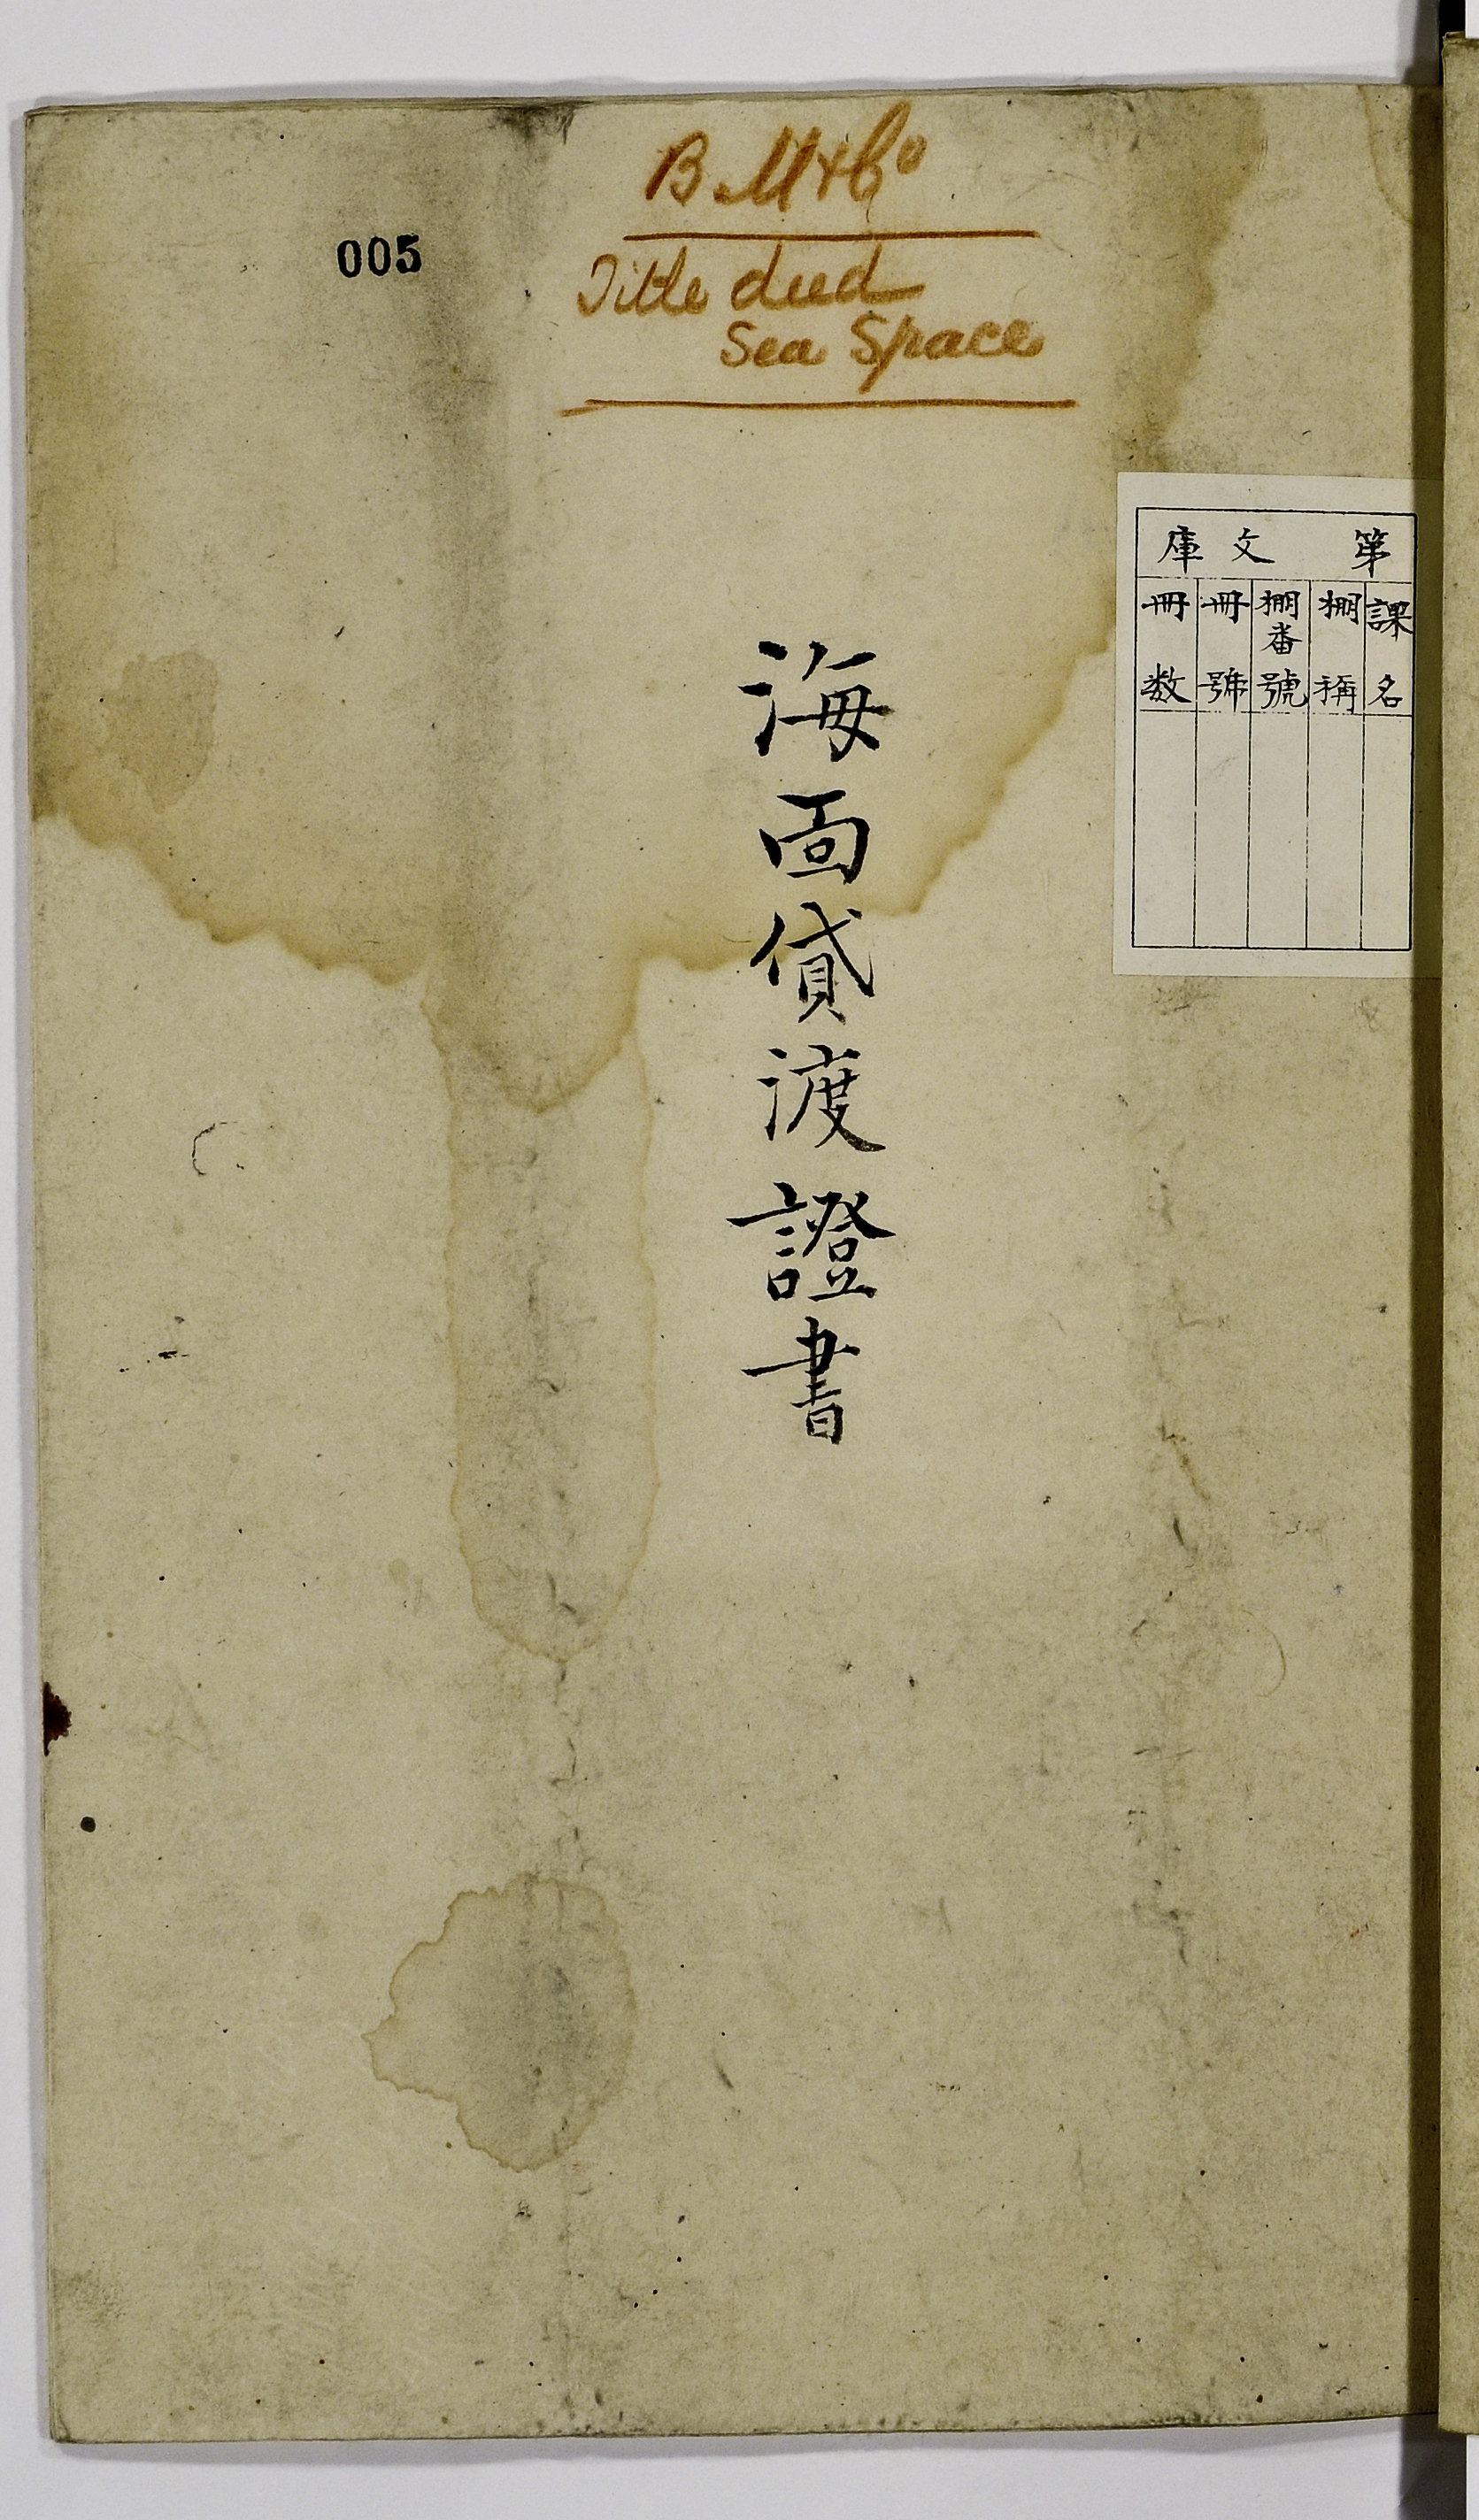 B M & Co
005
Title deed
Sea Space
海面貸渡證書
第 文庫
課名
棚稱
棚番號
冊號
冊数